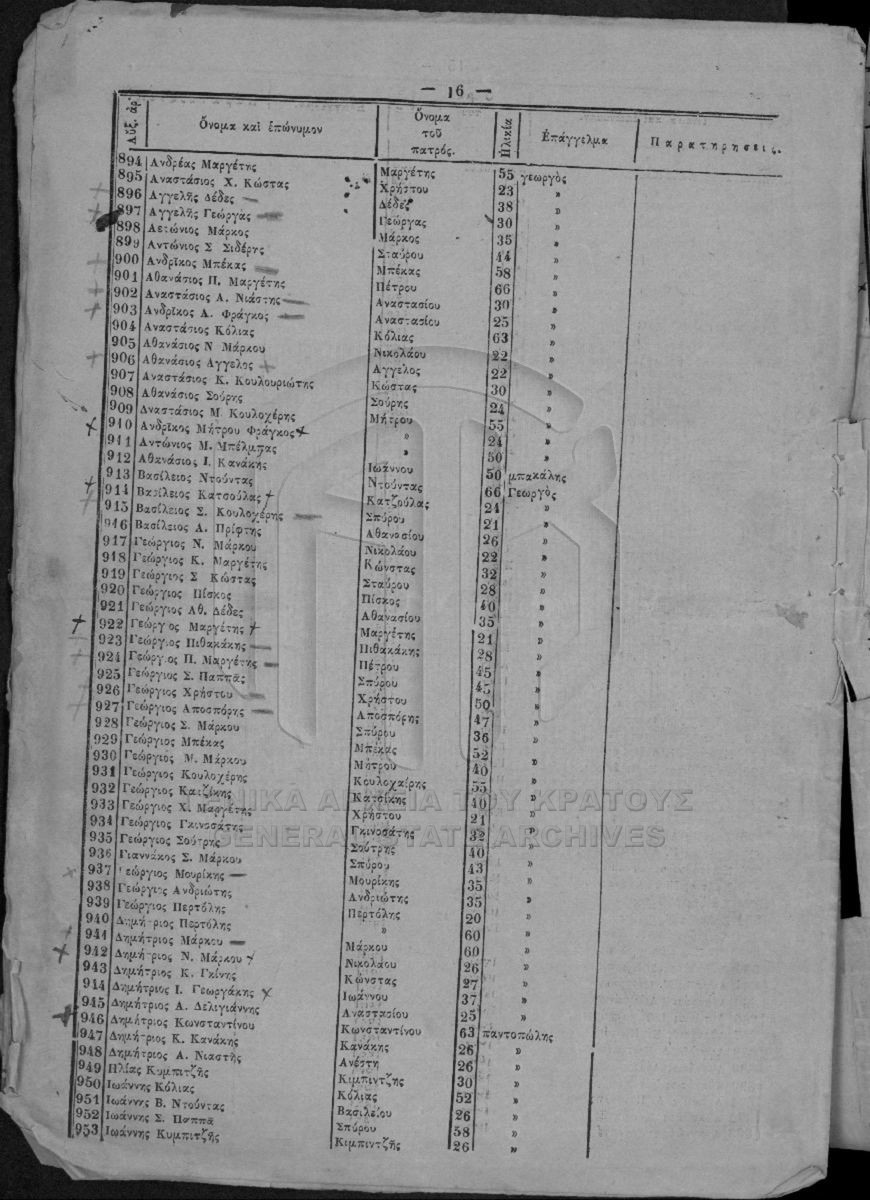 — 16 —
Αὔξ. ἀρ. Ὄνομα καὶ ἐπώνυμον Ὄνομα τοῦ πατρός. Ἡλικία Ἐπάγγελμα Παρατηρήσεις.
894 Ανδρέας Μαργέτης Μαργέτης 55 γεωργὸς
895 Αναστάσιος Χ. Κώστας Χρήστου 23 »
896 Αγγελῆς Δέδες Δέδες 38 »
897 Αγγελῆς Γεώργας Γεώργας 30 »
898 Αντώνιος Μάρκος Μάρκος 35 »
899 Αντώνιος Σ Σιδέρης Σταύρου 44 »
900 Ανδρῖκος Μπέκας Μπέκας 58 »
901 Αθανάσιος Π. Μαργέτης Πέτρου 66 »
902 Αναστάσιος Α. Νιάστης Αναστασίου 30 »
903 Ανδρῖκος Α. Φράγκος Αναστασίου 25 »
904 Αναστάσιος Κόλιας Κόλιας 63 »
905 Αθανάσιος Ν Μάρκου Νικολάου 22 »
906 Αθανάσιος Αγγελος Αγγελος 22 »
907 Αναστάσιος Κ. Κουλουριώτης Κώστας 30 »
908 Αθανάσιος Σούρης Σούρης 24 »
909 Αναστάσιος Μ. Κουλοχέρης Μήτρου 55 »
910 Ανδρῖκος Μήτρου Φράγκος » 24 »
911 Αντώνιος Μ. Μπέλμπας » 50 »
912 Αθανάσιος Ι. Κανάκης Ιωάννου 50 μπακάλης
913 Βασίλειος Ντούντας Ντούντας 66 Γεωργὸς
914 Βασίλειος Κατσούλας Κατζούλας 24 »
915 Βασίλειος Σ. Κουλοχέρης Σπύρου 21 »
916 Βασίλειος Α. Πρίφτης Αθανασίου 26 »
917 Γεώργιος Ν. Μάρκου Νικολάου 22 »
918 Γεώργιος Κ. Μαργέτης Κώνστας 32 »
919 Γεώργιος Σ Κώστας Σταύρου 28 »
920 Γεώργιος Πίσκος Πίσκος 40 »
921 Γεώργιος Αθ. Δέδες Αθανασίου 35 »
922 Γεώργιος Μαργέτης Μαργέτης 21 »
923 Γεώργιος Πιθακάκης Πιθακάκης 28 »
924 Γεώργιος Π. Μαργέτης Πέτρου 45 »
925 Γεώργιος Σ. Παππᾶς Σπύρου 45 »
926 Γεώργιος Χρήστου Χρήστου 50 »
927 Γεώργιος Αποσπόρης Αποσπόρης 47 »
928 Γεώργιος Σ. Μάρκου Σπύρου 36 »
929 Γεώργιος Μπέκας Μπέκας 52 »
930 Γεώργιος Μ. Μάρκου Μήτρου 40 »
931 Γεώργιος Κουλοχέρης Κουλοχαίρης 55 »
932 Γεώργιος Κατζίκης Κατσίκης 40 »
933 Γεώργιος Χ. Μαργέτης Χρήστου 21 »
934 Γεώργιος Γκινοσάτης Γκινοσάτης 32 »
935 Γεώργιος Σούτρης Σούτρης 40 »
936 Γιαννάκος Σ. Μάρκου Σπύρου 43 »
937 Γεώργιος Μουρίκης Μουρίκης 35 »
938 Γεώργιος Ανδριώτης Ανδριώτης 35 »
939 Γεώργιος Περτόλης Περτόλης 20 »
940 Δημήτριος Περτόλης » 60 »
941 Δημήτριος Μάρκου Μάρκου 60 »
942 Δημήτριος Ν. Μάρκου Νικολάου 26 »
943 Δημήτριος Κ. Γκίνης Κώνστας 27 »
944 Δημήτριος Ι. Γεωργάκης Ιωάννου 37 »
945 Δημήτριος Α. Δελιγιάννης Αναστασίου 25 »
946 Δημήτριος Κωνσταντίνου Κωνσταντίνου 63 παντοπώλης
947 Δημήτριος Κ. Κανάκης Κανάκης 26 »
948 Δημήτριος Α. Νιαστῆς Ανέστη 26 »
949 Ηλίας Κυμπιτζῆς Κιμπιντζης 30 »
950 Ιωάννης Κόλιας Κόλιας 52 »
951 Ιωάννης Β. Ντούντας Βασιλείου 26 »
952 Ιωάννης Σ. Παππᾶ Σπύρου 58 »
953 Ιωάννης Κυμπιτζῆς Κιμπιντζῆς 26 »
ΓΕΝΙΚΑ ΑΡΧΕΙΑ ΤΟΥ ΚΡΑΤΟΥΣ
GENERAL STATE ARCHIVES